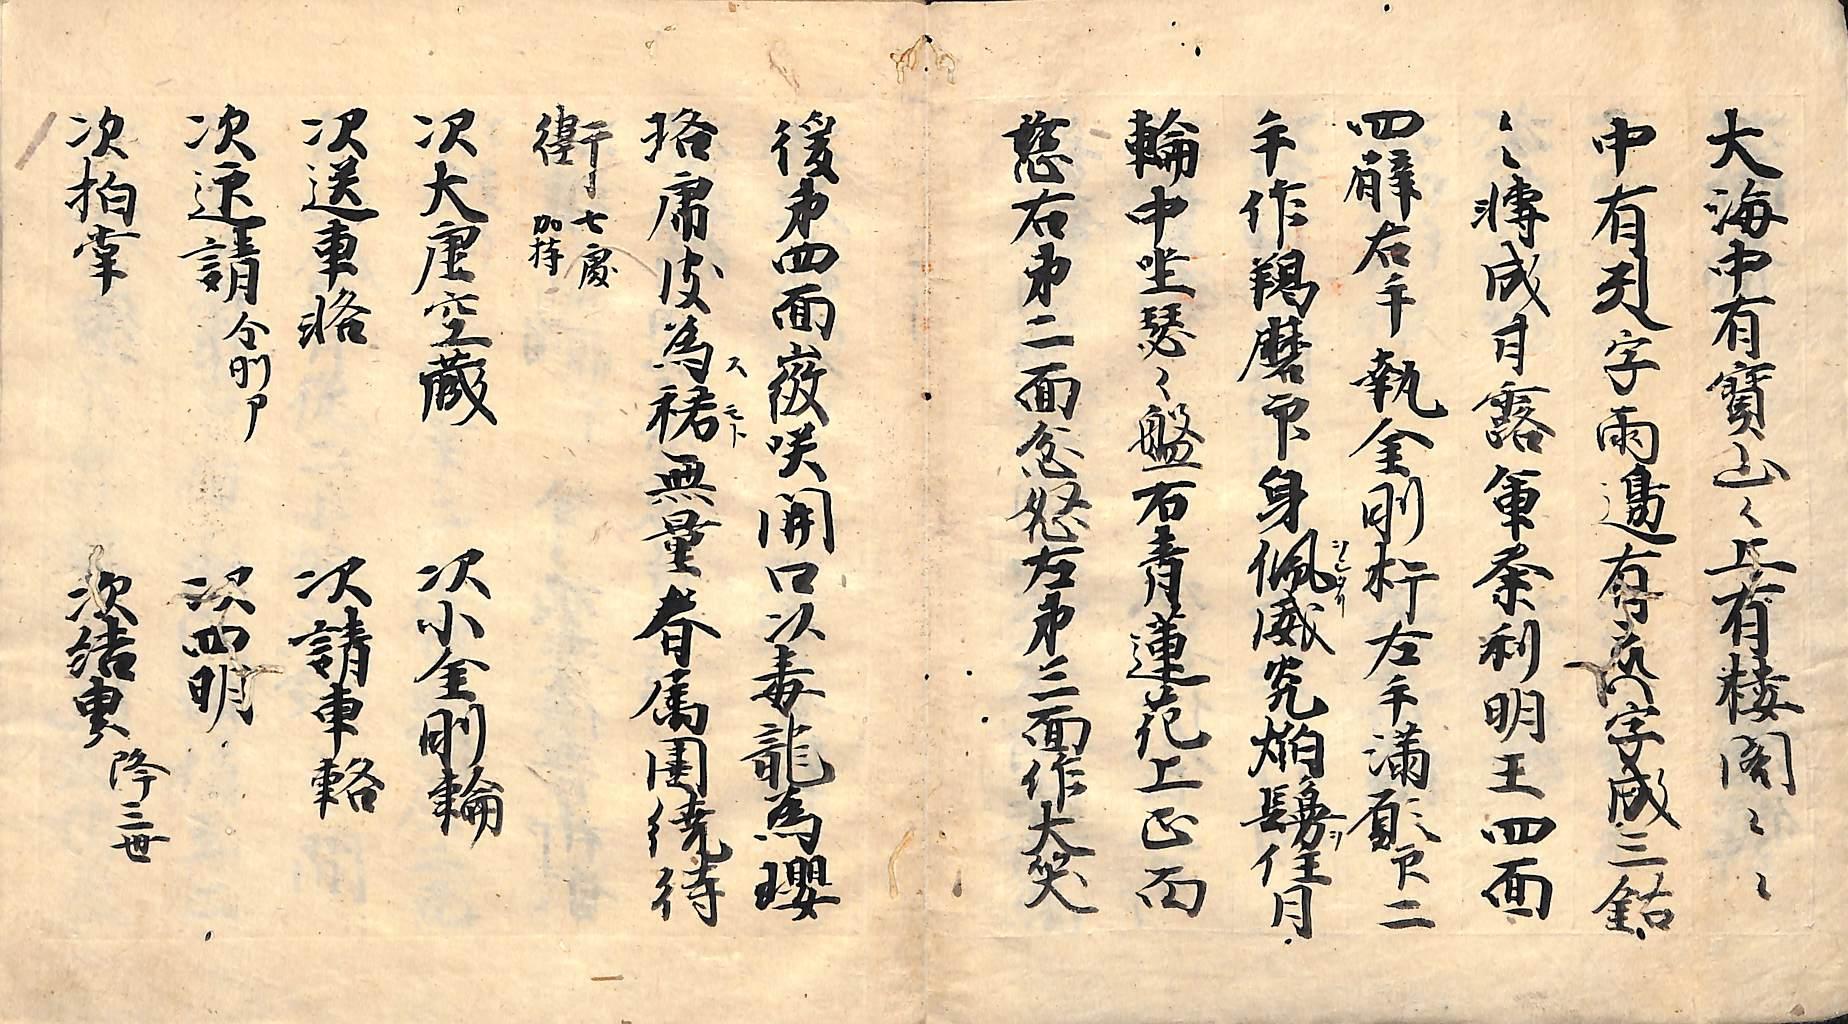 大海中有寳山〻上有楼閣〻〻
中有字両邊有字成三鈷
〻轉成甘露軍荼利明王四面
四臂右手執金剛杵左手満願印二
手作羯磨印身佩威光焔鬘住月
輪中坐瑟〻盤石青蓮花上正面
慈右第二面忿怒左第三面作大笑
後第四面微咲開口以毒龍為瓔
珞虎皮為裙無量眷属囲繞待
衛 七處加持
次大虚空蔵 次小金剛輪
次送車輅 次請車輅
次迎請 次四明
次拍掌 次結界 降三世